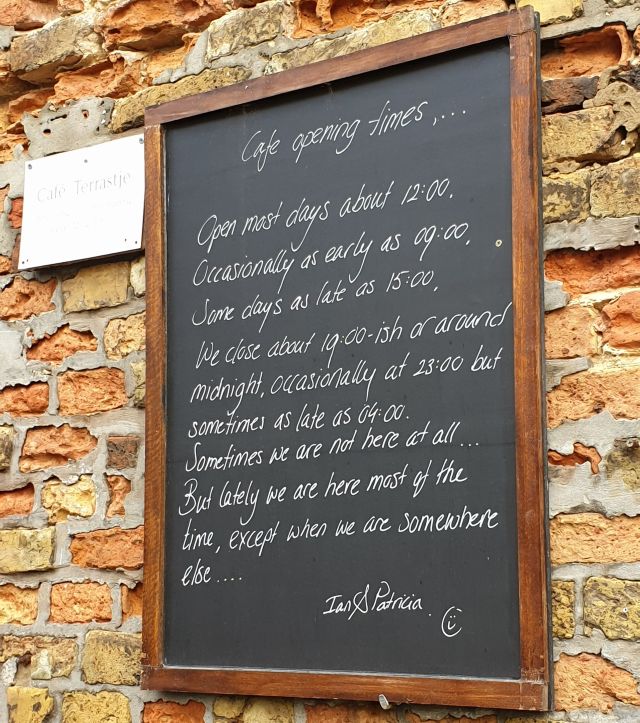 Cafe opening times,...
Open most days about 12:00.
Occasionally as early as 09:00,
Some days as late as 15:00,
We close about 19:00-ish or around
midnight, occasionally at 23:00 but
sometimes as late as 04:00.
Sometimes we are not here at all...
But lately we are here most of the
time, except when we are somewhere
else....
Ian & Patricia.
Café Terrastje